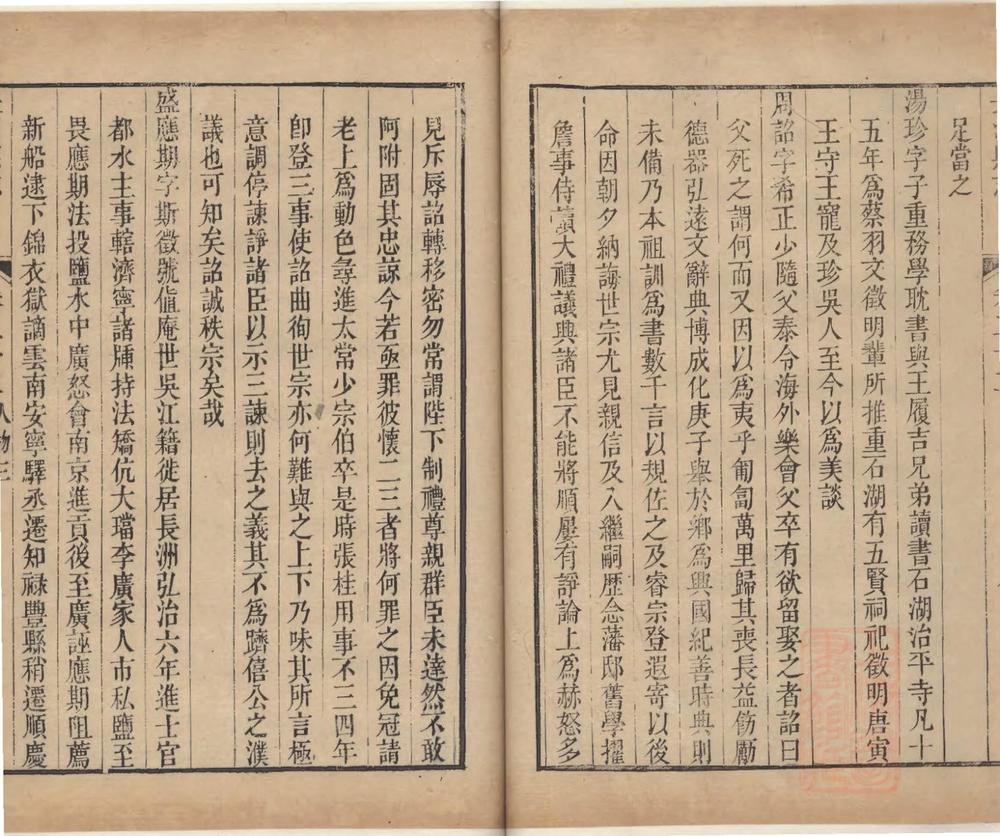 足當之
湯珍字子重務學耽書與王履吉兄弟讀書石湖治平寺凡十
五年爲蔡羽文徵明輩所推重石湖有五賢祠祀徵明唐寅
王守王寵及珍吳人至今以爲美談
周詔字希正少隨父泰令海外樂會父卒有欲留娶之者詔曰
父死之謂何而又因以爲夷乎匍匐萬里歸其喪長益飭勵
德器弘遠文辭典博成化庚子舉於鄉爲興國紀善時典則
未備乃本祖訓爲書數千言以規佐之及睿宗登遐寄以後
命因朝夕納誨世宗尤見親信及入繼嗣歷念藩邸舊學擢
詹事侍讀大禮議興諸臣不能將順屢有諍論上爲赫怒多
見斥辱詔轉移密勿常謂陛下制禮尊親群臣未達然不敢
阿附固其忠諒今若亟罪彼懷二三者將何罪之因免冠請
老上爲動色尋進太常少宗伯卒是時張桂用事不三四年
卽登三事使詔曲徇世宗亦何難與之上下乃味其所言極
意調停諫諍諸臣以示三諫則去之義其不爲躋僖公之濮
議也可知矣詔誠秩宗矣哉
盛應期字斯徵號値庵世吳江籍徙居長洲弘治六年進士官
都水主事轄濟寧諸牐持法矯伉大璫李廣家人市私鹽至
畏應期法投鹽水中廣怒會南京進貢後至廣誣應期阻薦
新船逮下錦衣獄謫雲南安寧驛丞遷知祿豐縣稍遷順慶